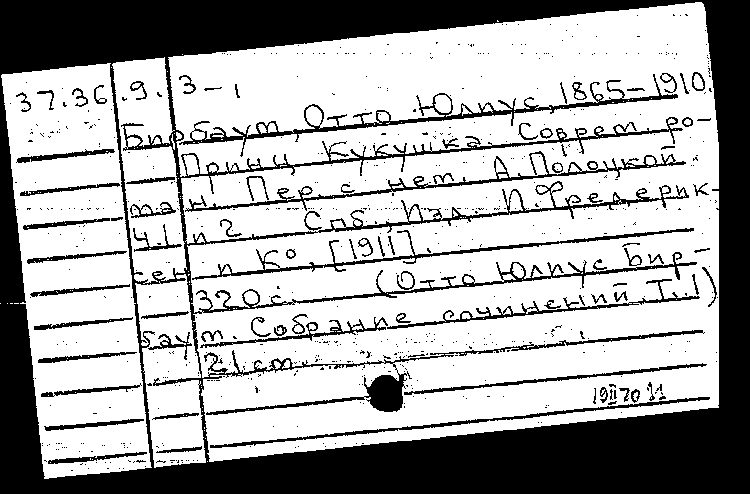 37.36.9.3-1
Бирбаум, Отто Юлиус, 1865-1910.
Принц Кукушка. Соврем. ро-
ман. Пер. с нем. А. Полоцкой
Ч.1 и 2. Спб., Изд. И. Фредерик-
сен и К°, [1911].
320 с. (Отто Юлиус Бир-
баум. Собрание сочинений. Т.1)
21 cm.
19II70 11